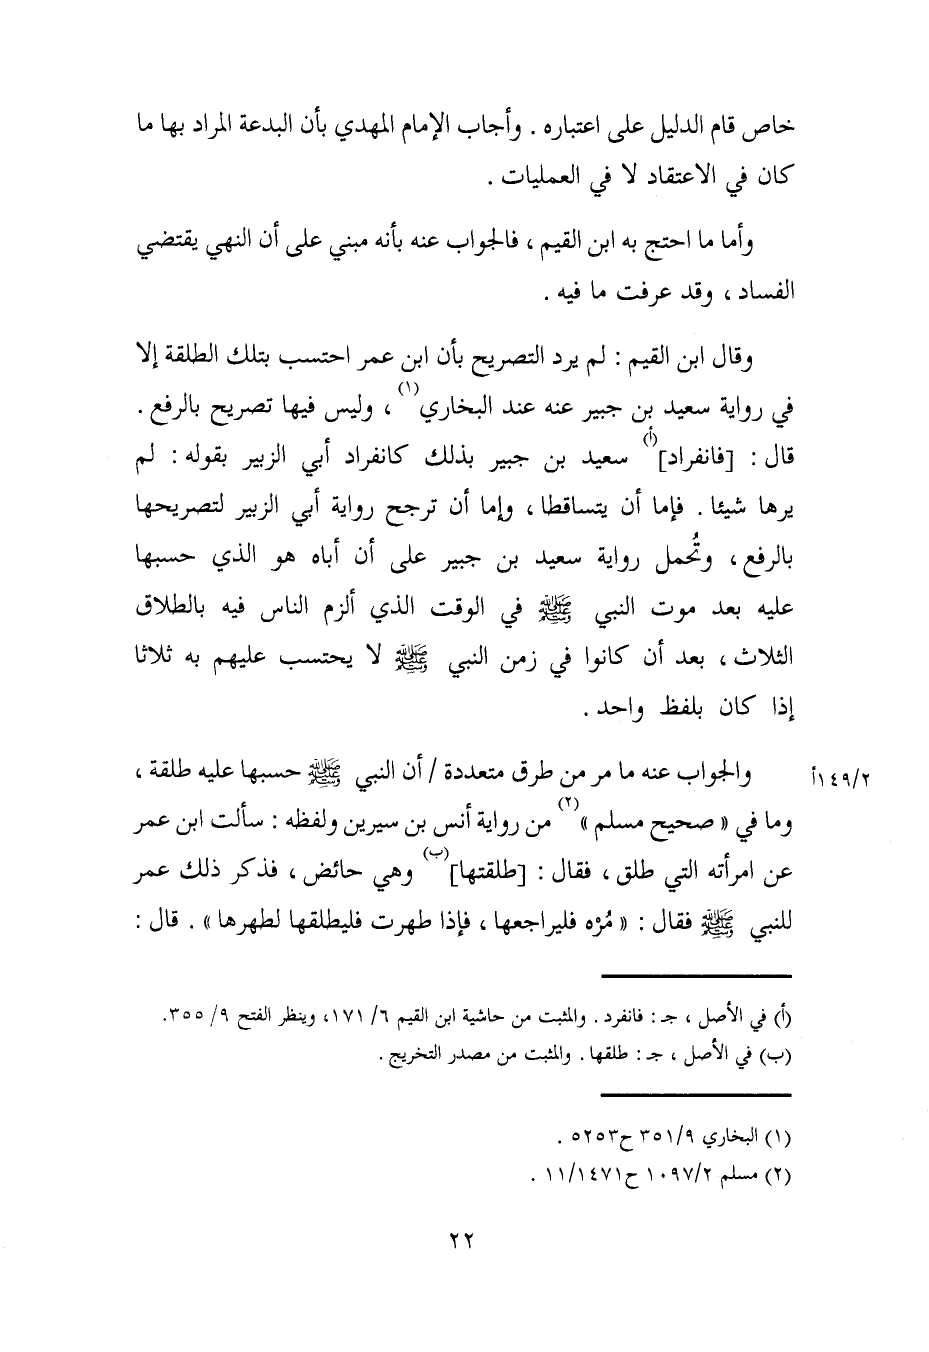 خاص قام الدليل على اعتباره . وأجاب الإمام المهدي بأن البدعة المراد بها ما
كان في الاعتقاد لا في العمليات .
وأما ما احتج به ابن القيم ، فالجواب عنه بأنه مبني على أن النهي يقتضي
الفساد ، وقد عرفت ما فيه .
وقال ابن القيم : لم يرد التصريح بأن ابن عمر احتسب بتلك الطلقة إلا
في رواية سعيد بن جبير عنه عند البخاري(١) ، وليس فيها تصريح بالرفع .
قال : [فانفراد](أ) سعيد بن جبير بذلك كانفراد أبي الزبير بقوله : لم
يرها شيئا . فإما أن يتساقطا ، وإما أن ترجح رواية أبي الزبير لتصريحها
بالرفع ، وتُحمل رواية سعيد بن جبير على أن أباه هو الذي حسبها
عليه بعد موت النبي ﷺ في الوقت الذي ألزم الناس فيه بالطلاق
الثلاث ، بعد أن كانوا في زمن النبي ﷺ لا يحتسب عليهم به ثلاثا
إذا كان بلفظ واحد .
والجواب عنه ما مر من طرق متعددة / أن النبي ﷺ حسبها عليه طلقة ، ١٤٩/٢أ
وما في « صحيح مسلم »(٢) من رواية أنس بن سيرين ولفظه : سألت ابن عمر
عن امرأته التي طلق ، فقال : [طلقتها](ب) وهي حائض ، فذكر ذلك عمر
للنبي ﷺ فقال : « مُرْه فليراجعها ، فإذا طهرت فليطلقها لطهرها » . قال :
(أ) في الأصل ، جـ : فانفرد . والمثبت من حاشية ابن القيم ٦/ ١٧١، وينظر الفتح ٩/ ٣٥٥.
(ب) في الأصل ، جـ : طلقها . والمثبت من مصدر التخريج .
(١) البخاري ٣٥١/٩ ح٥٢٥٣ .
(٢) مسلم ١٠٩٧/٢ ح١١/١٤٧١ .
٢٢